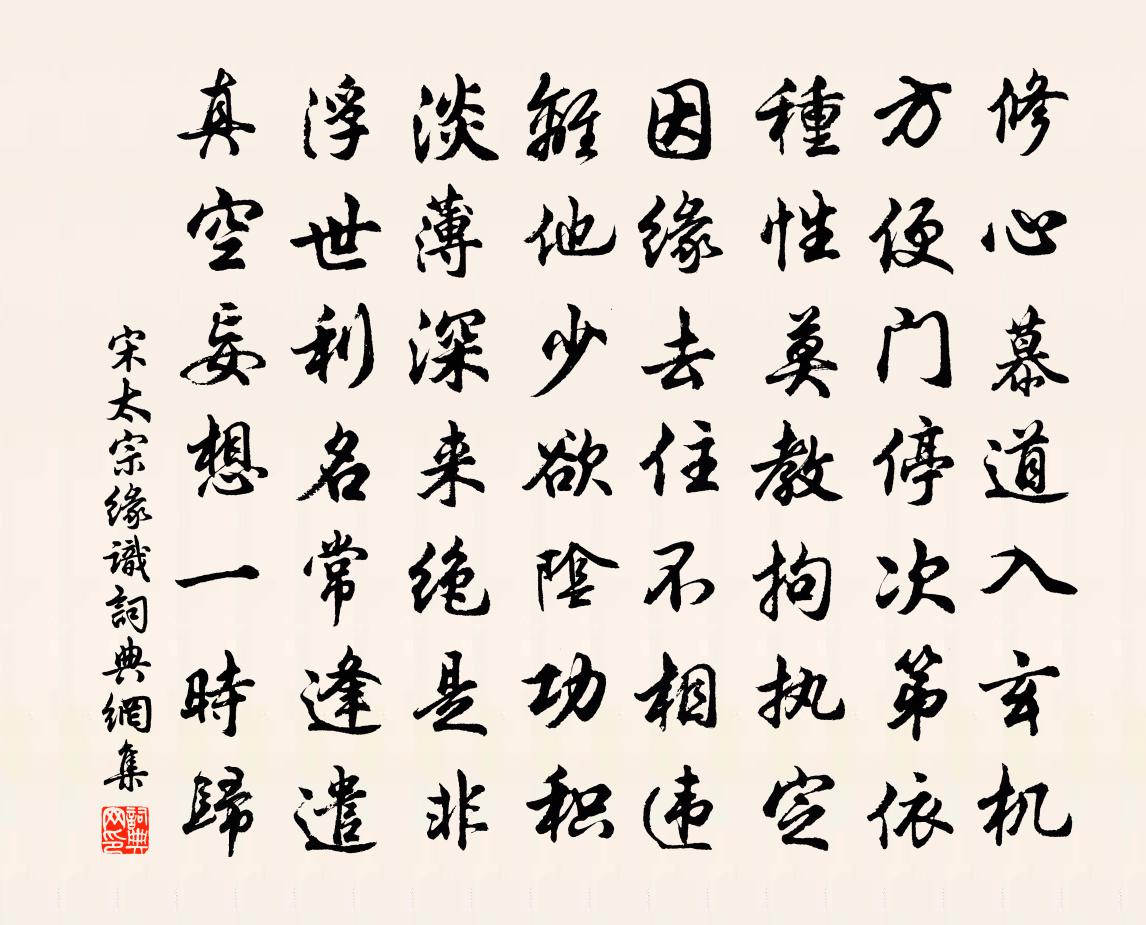 修心慕道入玄机
方便门停次第依
種性莫教拘执定
因缘去住不相违
離他少欲陰功积
淡薄深来绝是非
浮世利名常逢遣
真空妄想一時歸
宋太宗缘識詞典網集
詞典网印